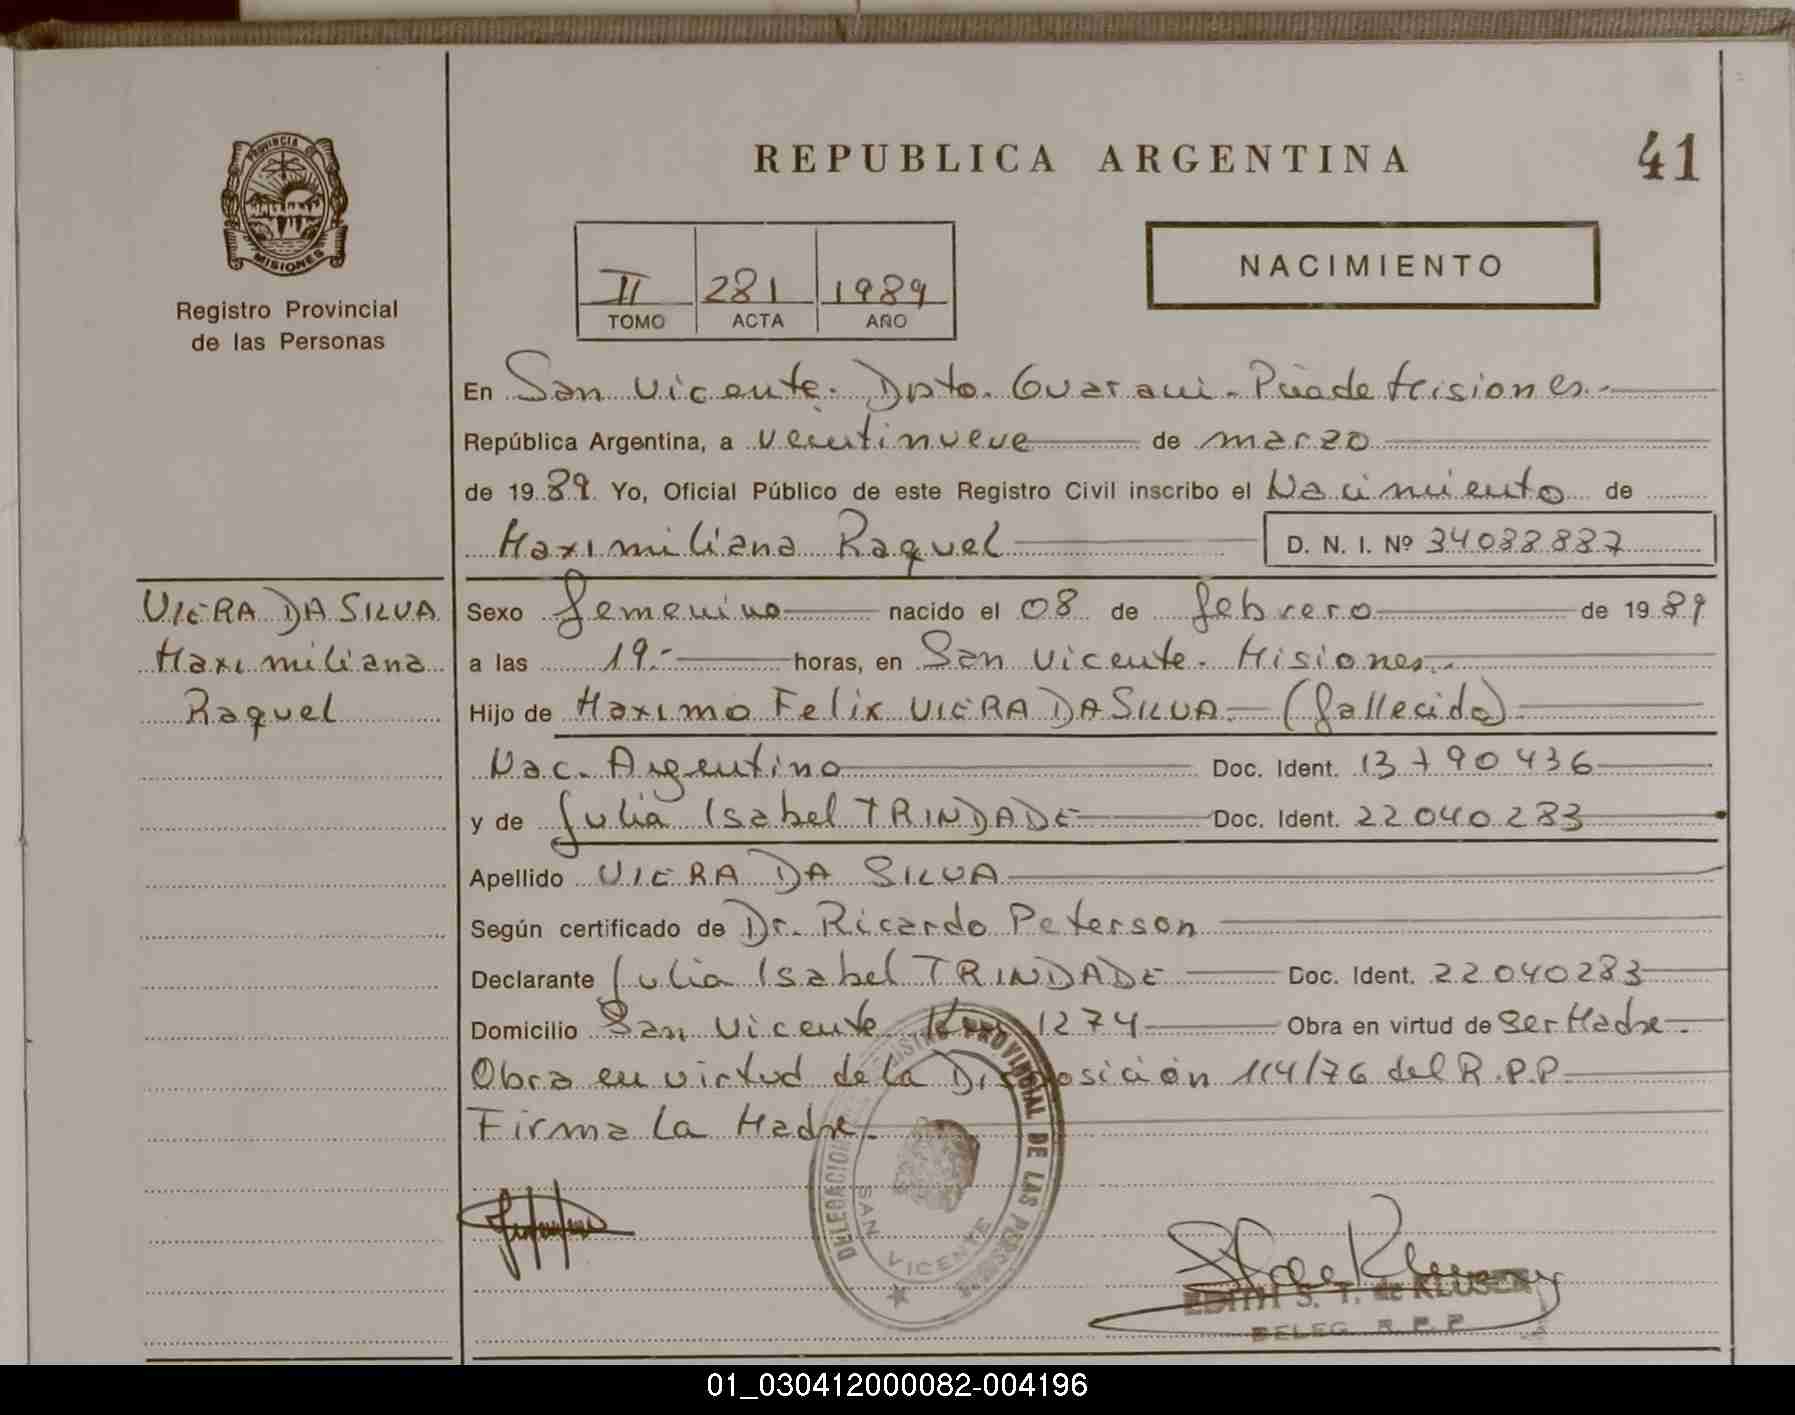 PROVINCIA DE
MISIONES
Registro Provincial
de las Personas
REPUBLICA ARGENTINA
41
II 281 1989
TOMO ACTA AÑO
NACIMIENTO
En San Vicente. Dpto. Guarani - Pciade Misiones.-
República Argentina, a veintinueve de marzo
de 19 89. Yo, Oficial Público de este Registro Civil inscribo el Nacimiento de
Maximiliana Raquel D. N. I. Nº 34088887
VIERA DA SILVA
Maximiliana
Raquel
Sexo femenino nacido el 08 de febrero de 19 89
a las 19.- horas, en San Vicente. Misiones.
Hijo de Maximo Felix VIERA DA SILVA.- (fallecido)
Nac. Argentino Doc. Ident. 13790436
y de Julia Isabel TRINDADE Doc. Ident. 22040283
Apellido VIERA DA SILVA
Según certificado de Dr. Ricardo Peterson
Declarante Julia Isabel TRINDADE Doc. Ident. 22040283
Domicilio San Vicente Km 1274 Obra en virtud de Ser Madre.
Obra en virtud de la Disposición 114/76 del R.P.P.
Firma La Madre.
DELEGACION REGISTRO PROVINCIAL DE LAS PERSONAS
SAN VICENTE
EDITH S. T. de KLUSEN
DELEG. R. P. P.
01_030412000082-004196